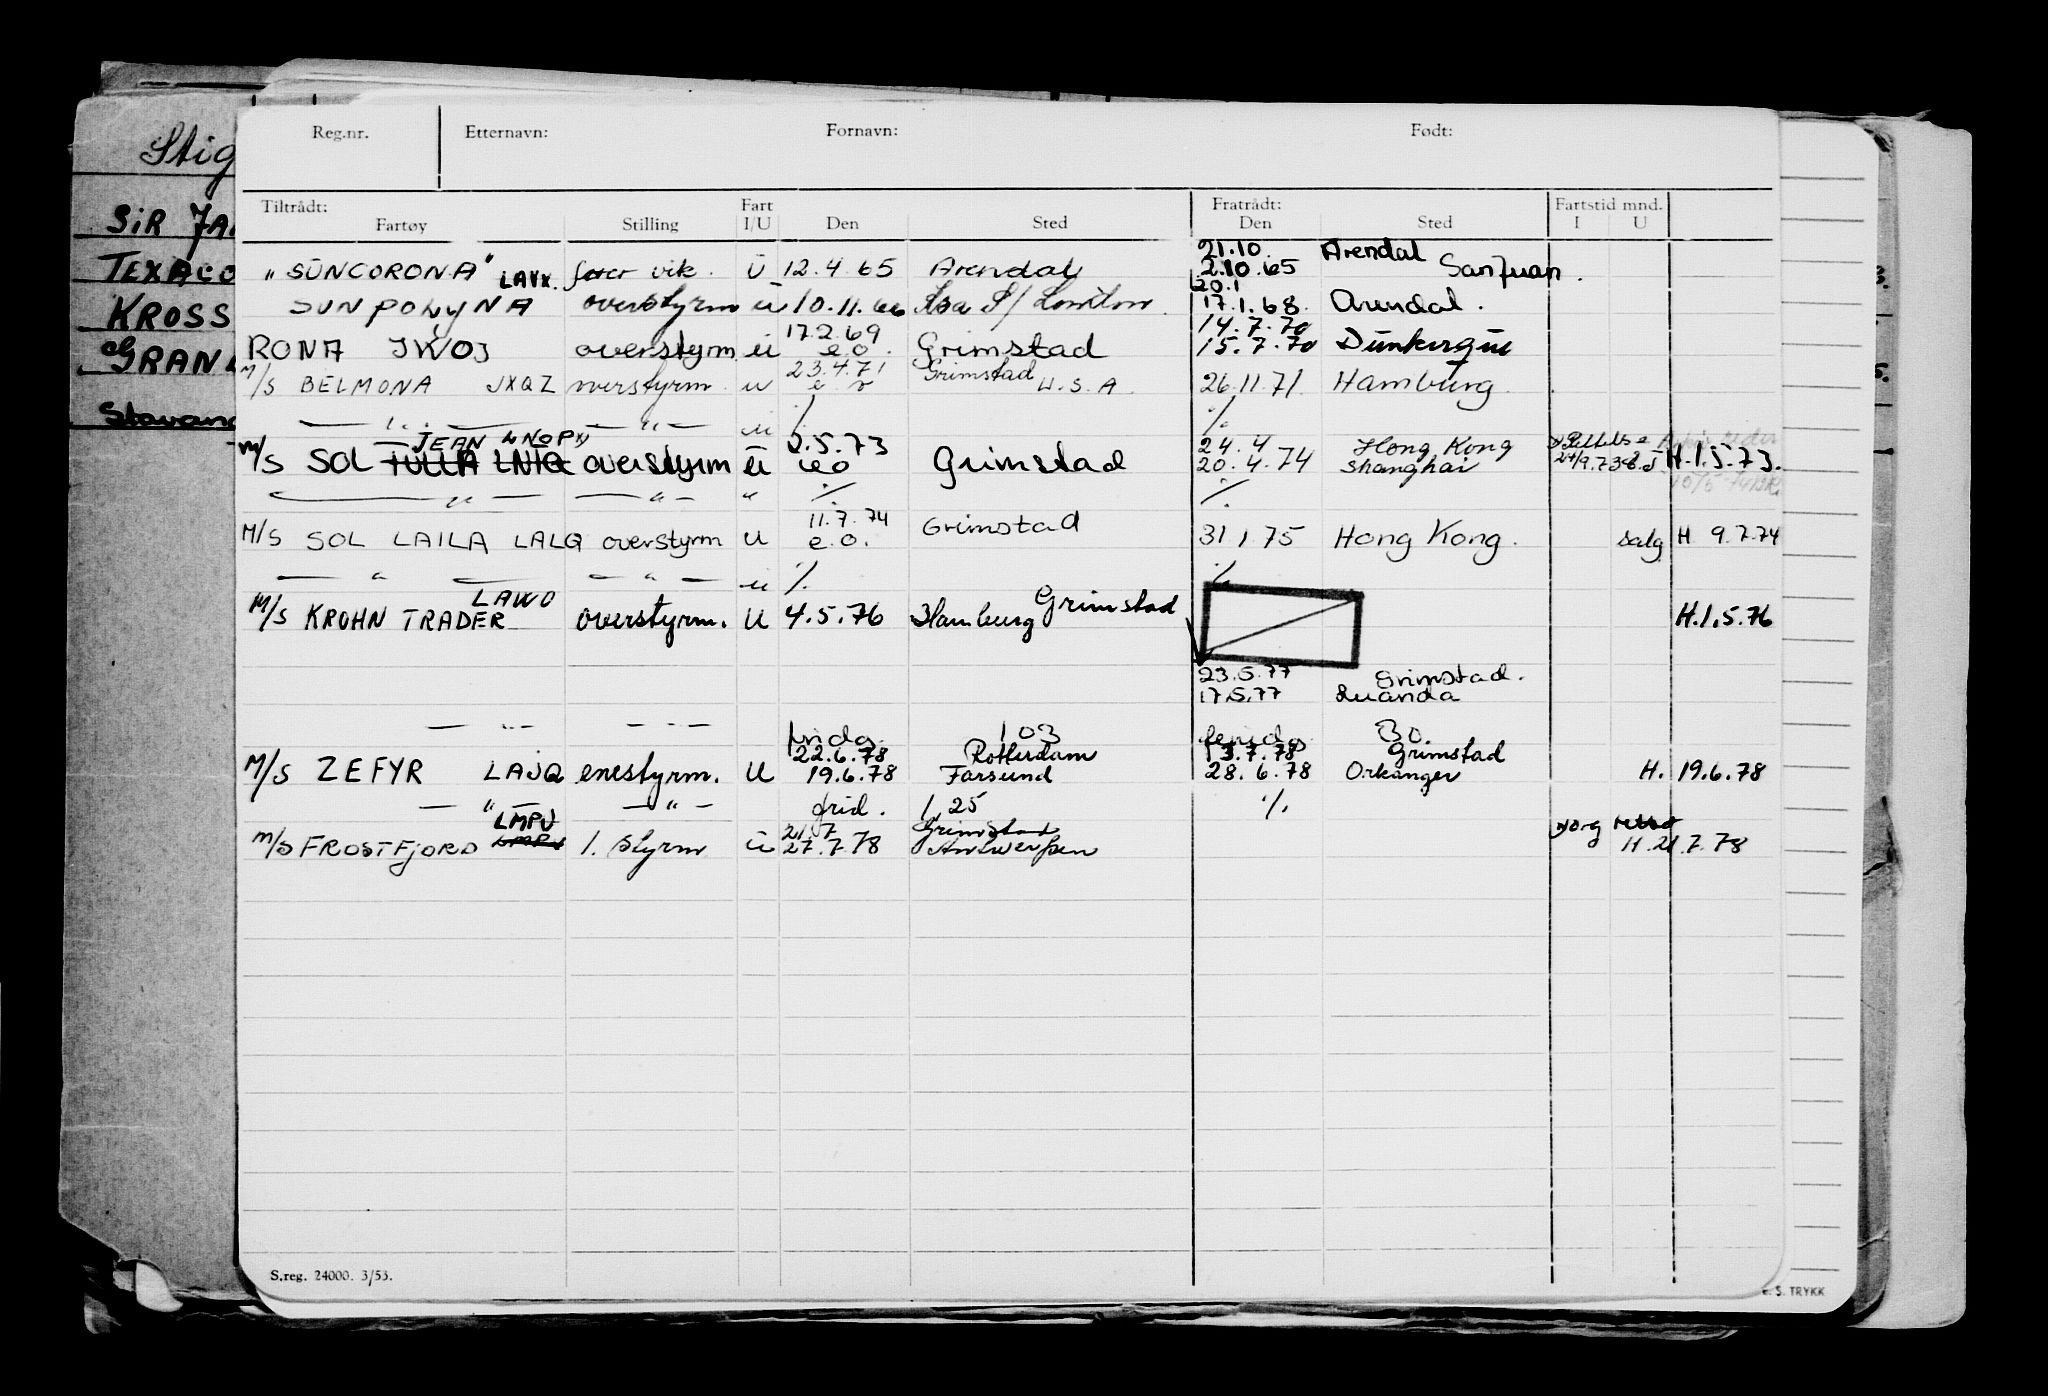 Reg.nr. Etternavn: Fornavn: Født:
Stig
Tiltrådt: Fart Fratrådt: Fartstid mnd.
Fartøy Stilling I/U Den Sted Den Sted I U
SIR JA
TEXACO
KROSS
GRAN
Stavang
21.10. Arendal
"SUNCORONA" LAVX. vik. Ü 12.4.65 Arendal 2.10.65 San Juan.
20.1
SUNPOLYNA overstyrm ü 10.11.66 London 17.1.68. Arendal.
17.2.69 14.7.70
RONA JWOJ overstyrm ü e.o. Grimstad 15.7.70 Dunkerque
23.4.71 Grimstad
M/S BELMONA JXQZ overstyrm u U.S.A. 26.11.71. Hamburg
— " — — " — u ./. ./.
JEAN LNOP 2.5.73 24.4 Hong Kong
M/S SOL TULLA LNTQ overstyrm ü e o Grimstad 20.4.74 Shanghai H.1.5.73.
— " — — " — " ./. ./.
11.7.74 Grimstad
M/S SOL LAILA LALQ overstyrm u e.o. 31 1.75 Hong Kong. salg H 9.7.74
— " — — " — u ./. ./.
LAWO Grimstad
M/S KROHN TRADER overstyrm. U 4.5.76 Hamburg H.1.5.76
23.5.77 Grimstad.
17.5.77 Luanda
— " — — " — 103 30
22.6.78 Rotterdam 13.7.78 Grimstad
M/S ZEFYR LAJQ enestyrm. U 19.6.78 Farsund 28.6.78 Orkanger H. 19.6.78
— " — — " — frid. 1,25 ./.
LMPV 21.7 Grimstad
M/S FROSTFJORD LMPV 1. styrm ü 27.7.78 Antwerpen H. 21.7.78
S.reg. 24000. 3/53.
S. TRYKK